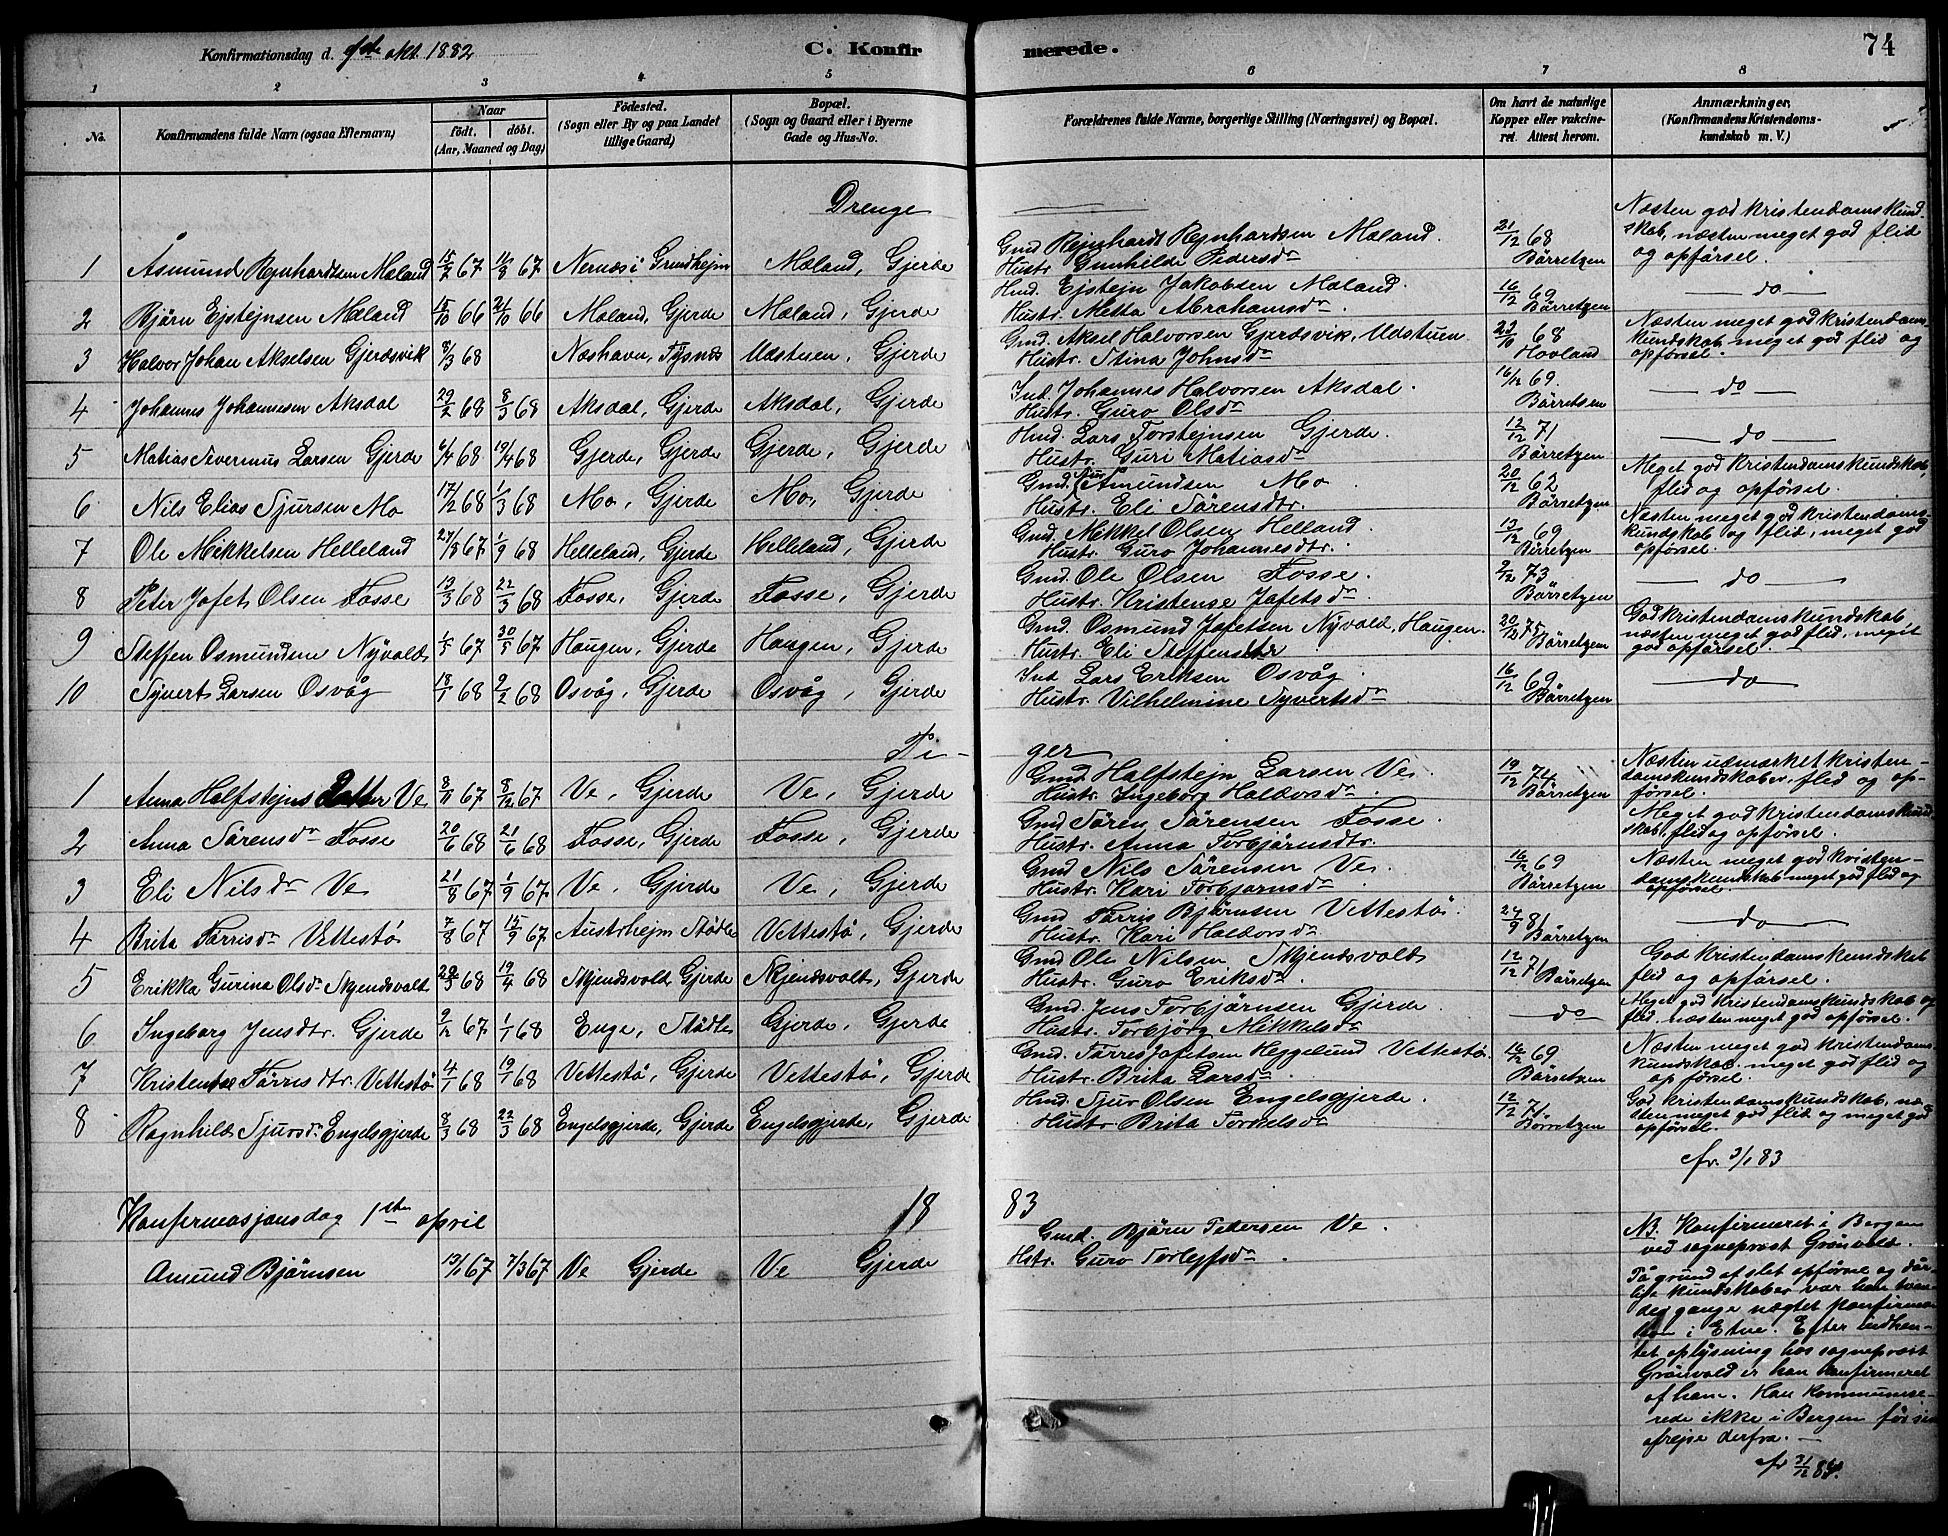 Konfirmationsdag d. okt. 1882 C. Konfirmerede. 74
1 2 3 4 5 6 7 8
No. Konfirmandens fulde Navn (ogsaa Efternavn) Naar födt. döbt. (Aar, Maaned og Dag) Födested. (Sogn eller By og paa Landet tillige Gaard) Bopæl. (Sogn og Gaard eller i Byerne Gade og Hus-No. Forældrenes fulde Navne, borgerlige Stilling (Næringsvei) og Bopæl. Om havt de naturlige Kopper eller vaccineret. Attest herom. Anmærkninger, (Konfirmandens Kristendomskundskab m. V.)
Drenge
1 Åsmund Rejnhardtsen Mæland 15/2 67 11/8 67 Nernæs i Grindhejm Mæland, Gjerde Gmd. Rejnhardt Rejnhardsen Mæland. Hustr. Gunhilde Pedersdr 21/12 68 Börretzen Næsten god kristendamskundskab, næsten meget god flid og opförsel.
2 Björn Ejstejnsen Mæland 15/10 66 21/10 66 Mæland, Gjerde Mæland, Gjerde Hmd. Ejstejn Jakobsen Mæland. Hustr. Metta Abrahamsdr. 16/12 69 Börretzen do
3 Halvor Johan Akselsen Gjerdsvik 8/3 68 Næshavn, Tysnes Udstuen, Gjerde Gmd. Aksel Halvorsen Gjerdsvik, Udstuen Hustr. Stina Johnsdr 23/10 68 Hovland Næsten meget god kristendamskundskab, meget god flid og opförsel.
4 Johannes Johannesen Aksdal 29/2 68 8/3 68 Aksdal, Gjerde Aksdal, Gjerde Ind. Johannes Halvorsen Aksdal. Hustr. Guro Olsdr 16/12 69. Börretsen do
5 Matias Severinus Larsen Gjerde 6/4 68 19/4 68 Gjerde, Gjerde Gjerde, Gjerde Hmd. Lars Torstejnsen Gjerde. Hustr. Guri Matiasdr 12/12 71 Börretzen do
6 Nils Elias Sjursen Mo 17/2 68 1/3 68 Mo, Gjerde Mo, Gjerde Gmd. Sjur Amundsen Mo Hustr. Eli Sörensdtr. 20/12 62 Börretzen Meget god kristendamskundskab, flid og opförsel.
7 Ole Mikkelsen Helleland 27/8 67 1/9 68 Helleland, Gjerde Helleland, Gjerde Gmd. Mikkel Olsen Helland. Hustr. Guro Johannesdtr. 13/12 69 Börretzen Næsten meget god kristendamskundskab og flid, meget god opförsel.
8 Peter Jafet Olsen Fosse 13/3 68 22/3 68 Fosse, Gjerde Fosse, Gjerde Gmd. Ole Olsen Fosse. Hustr. Kristense Jafetsdr 2/12 73 Börretzen do
9 Steffen Osmundsen Nyvold 1/5 67 30/5 67 Haugen, Gjerde Haugen, Gjerde Gmd. Osmund Jafetsen Nyvold, Haugen. Hustr. Eli Steffensdtr 20/12 75 Börretzen God kristendamskundskab, næsten meget god flid, meget god opförsel.
10 Syvert Larsen Osvåg 18/1 68 2/2 68 Osvåg, Gjerde Osvåg, Gjerde Ind Lars Eriksen Osvåg Hustr. Vilhelmine Syvertsdr 16/12 69 Börretzen do
Piger
1 Anna Halfstejns Datter Ve 8/11 67 8/12 67 Ve, Gjerde Ve, Gjerde Gmd. Halfstejn Larsen Ve. Hustr. Ingeborg Haldorsdr. 19/12 74 Börretzen Næsten udmærket kristendamskundskaber, flid og opförsel.
2 Anna Sörensdr Fosse 20/6 68 21/6 68 Fosse, Gjerde Fosse, Gjerde Gmd Sören Sörensen Fosse. Hustr. Anna Torbjörnsdtr. Meget god kristendamskundskab, flid og opförsel.
3 Eli Nilsdr Ve 21/8 67 1/9 67 Ve, Gjerde Ve, Gjerde Gmd Nils Sörensen Ve. Hustr. Kari Torbjörnsdr 16/12 69 Börretzen Næsten meget god kristendamskundskab, meget god flid og opförsel.
4 Brita Törrisdr Vettestö 7/8 67 15/9 67 Austrhejm Stödle Vettestö, Gjerde Gmd Törris Björnsen Vettestö. Hustr. Kari Haldorsdr 24/9 81 Börretzen do
5 Erikka Gurina Olsdr Skjendsvolt 29/3 68 19/4 68 Skjendsvold, Gjerde Skjendsvolt, Gjerde Gmd Ole Nilsen Skjendsvold Hustr. Guro Eriksdr. 12/12 71 Börretzen God kristendamskundskab flid og opförsel.
6 Ingeborg Jensdtr. Gjerde 9/12 67 1/1 68 Enge, Stödle Gjerde, Gjerde Gmd. Jens Torbjörnsen Gjerde Hustr. Torbjörg Mikkelsdr do Meget god kristendamskundskab og flid, næsten meget god opförsel.
7 Kristense Törrisdtr. Vettestö 4/1 68 19/1 68 Vettestö, Gjerde Vettestö, Gjerde Gmd. Törres Jafetsen Heggelund Vettestö. Hustr. Brita Larsdr. 16/12 69 Börretzen Næsten meget god kristendamskundskab, meget god flid og opförsel.
8 Ragnhild Sjursdr Engelsgjerde 8/3 68 22/3 68 Engelsgjerde, Gjerde Engelsgjerde, Gjerde Hmd. Sjur Olsen Engelsgjerde. Hustr Brita Torkelsdr 12/12 71 Börretzen God kristendamskundskab, næsten meget god flid og meget god opförsel.
Konfirmasjonsdag 1ste april 1883
Amund Björnsen 13/1 67 7/3 67 Ve Gjerde Ve Gjerde Gmd. Björn Pedersen Ve. Hstr. Guro Torlejfsdr.
NB. Konfirmeret i Bergen
ved sogneprost Grönvold.
På grund af slet opförsel og dårlige kundskaber var han tvende gange nægtet konfirmation i Etne. Efter indhentet oplysning hos sogneprost
Grönvold er han konfirmeret
af ham. Han kommunicerede ikke i Bergen för sin
afrejse derfra.